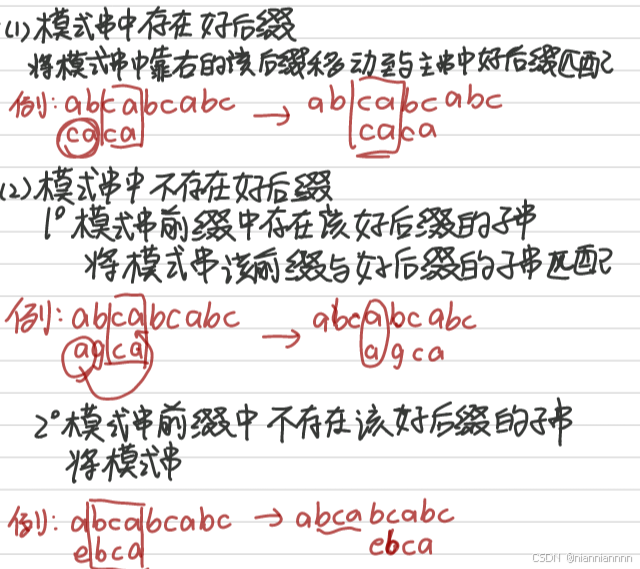 (1)模式串中存在好后缀
将模式串中靠右的该后缀移动至与主串中好后缀匹配
例: abcabcabc → abcabcabc
caca caca
(2)模式串中不存在好后缀
1°模式串前缀中存在该好后缀的子串
将模式串该前缀与好后缀的子串匹配
例: abcabcabc → abcabcabc
agca agca
2°模式串前缀中不存在该好后缀的子串
将模式串
例: abcabcabc → abcabcabc
ebca ebca
CSDN @nianniannnn